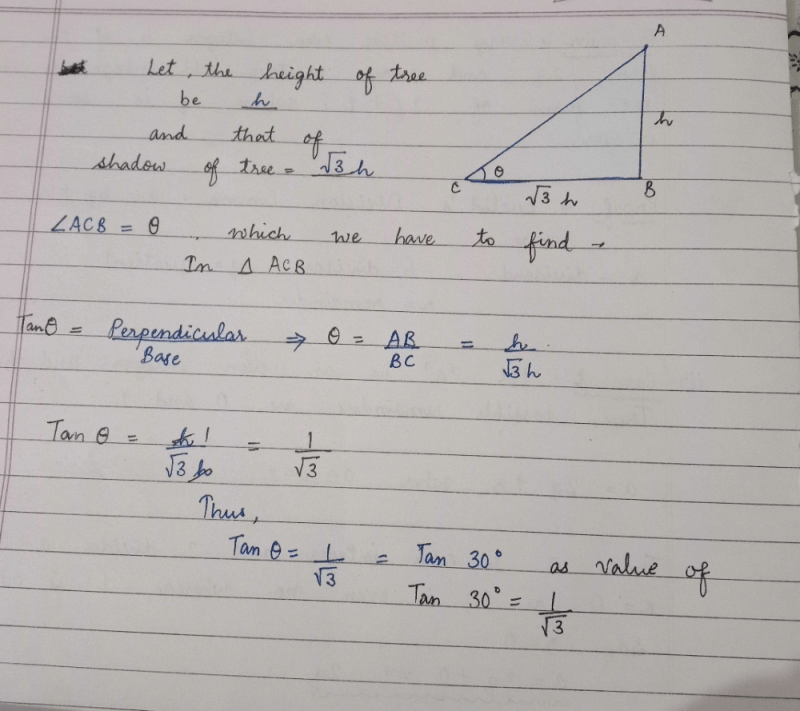 Let, the height of tree
be h
and that of
shadow of tree = √3 h
A
h
θ
C
B
√3 h
∠ACB = θ . which we have to find →
In Δ ACB
Tanθ = Perpendicular/Base ⇒ θ = AB/BC = h/√3h
Tan θ = h 1/√3 h = 1/√3
Thus,
Tan θ = 1/√3 = Tan 30° as value of
Tan 30° = 1/√3